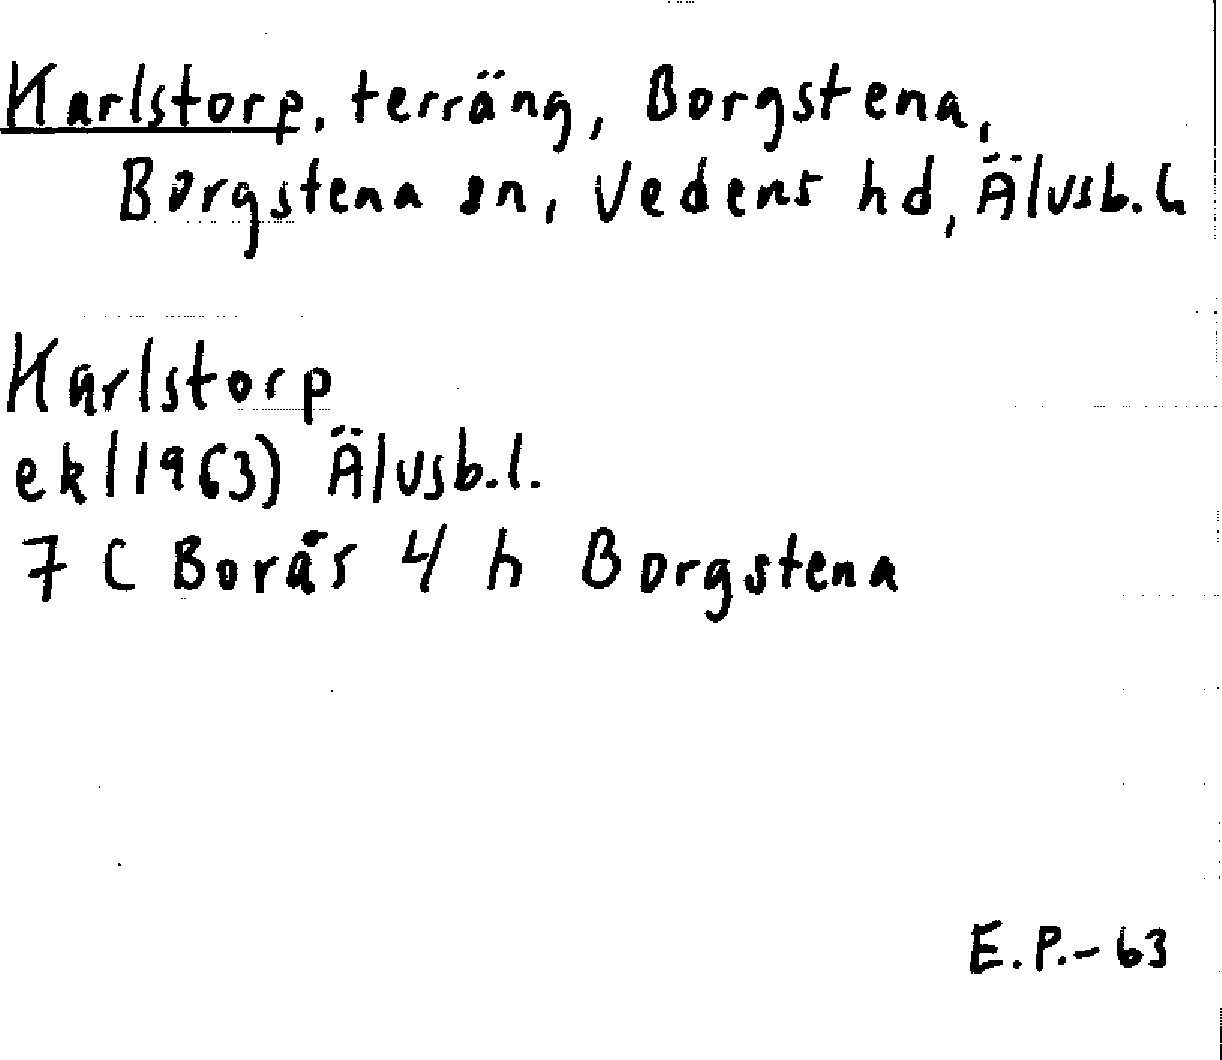 Karlstorp, terräng, Borgstena,
Borgstena sn, Vedens hd, Älvsb.l
Karlstorp
ek(1963) Älvsb.l.
7 C Borås 4 h Borgstena
E.P.-63